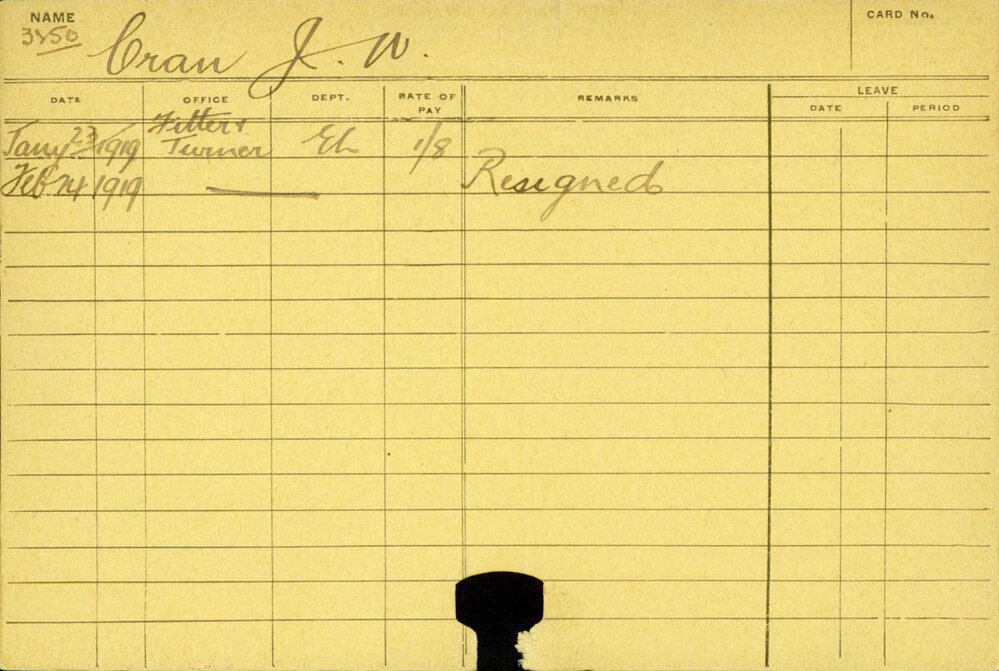 NAME
CARD No.
3850
Cran J. W.
DATE OFFICE DEPT. RATE OF PAY REMARKS LEAVE
DATE PERIOD
Jany 23/1919 Fitter & Turner El 1/8
Feb 24 1919 Resigned